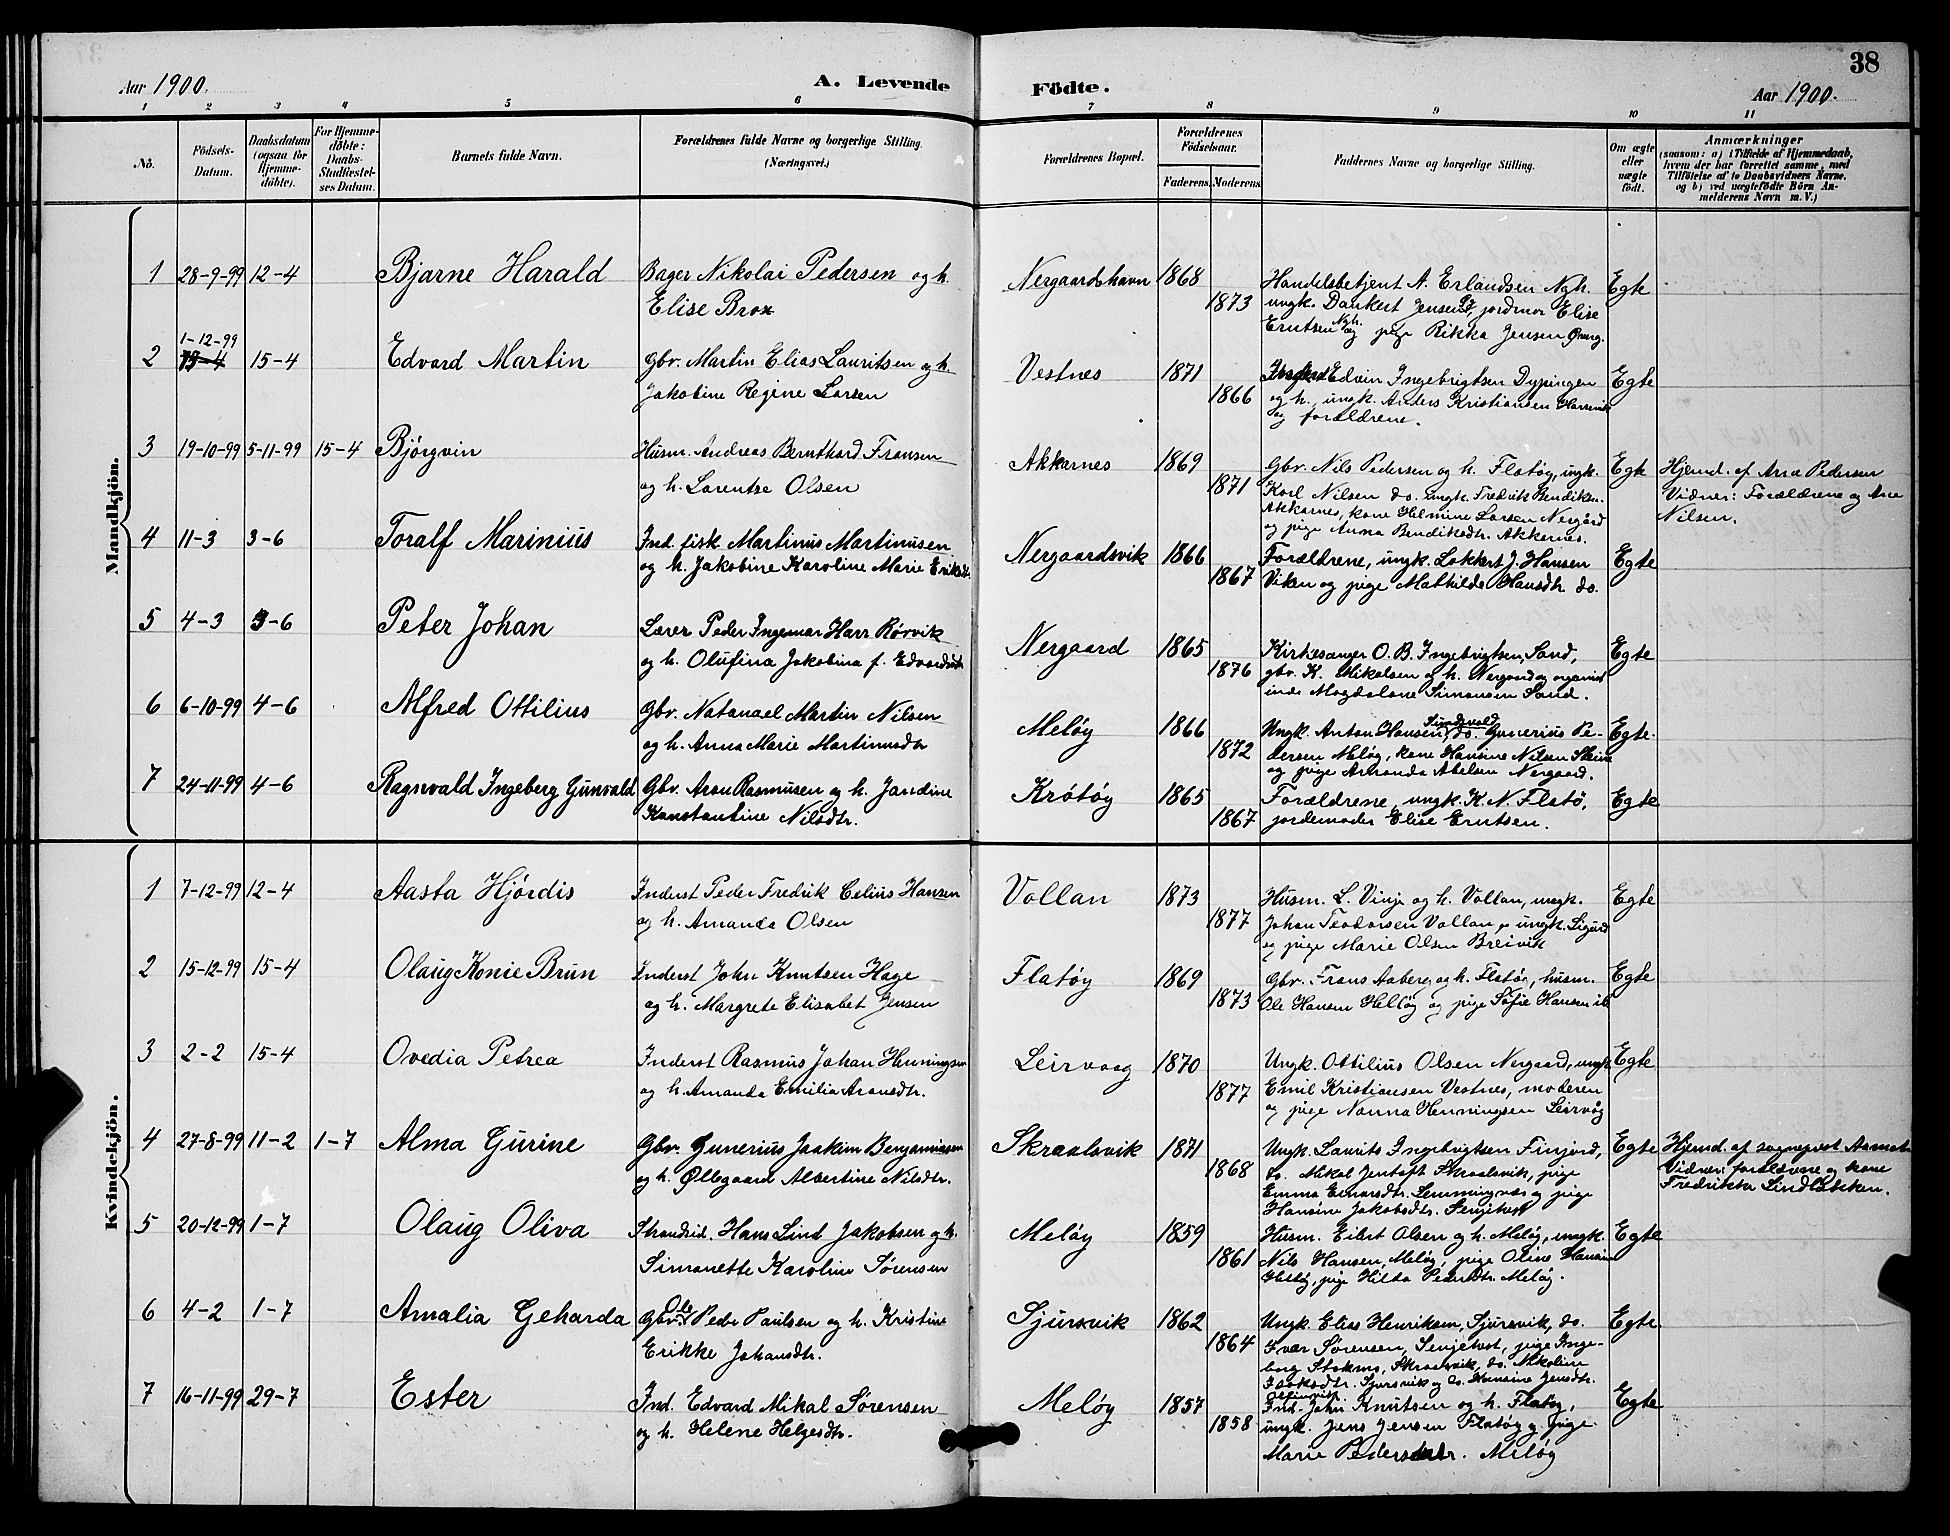 38
Aar 1900.
A. Levende Födte.
Aar 1900.
1 2 3 4 5 6 7 8 9 10 11
No.
Födsels-Datum.
Daabsdatum (ogsaa for Hjemme-döbte).
For Hjemme-döbte: Daabs-Stadfæstel-ses Datum.
Barnets fulde Navn.
Forældrenes fulde Navne og borgerlige Stilling.
(Næringsvei.)
Forældrenes Bopæl.
Forældrenes Födselsaar.
Faderens. Moderens.
Faddernes Navne og borgerlige Stilling.
Om ægte eller uægte födt.
Anmærkninger
(saasom: a) i Tilfælde af Hjemmedaab, hvem der har forrettet samme, med Tilföielse af to Daabsvidners Navne. og b) ved uægtefödte Börn Anmelderens Navn m. V.)
Mandkjön.
1 28-9-99 12-4 Bjarne Harald Bager Nikolai Pedersen og h. Nergaardshavn 1868 Handelsbetjent A. Erlandsen Ngh. Egte
Elise Brox 1873 ungk. Dankert Jensen, jordmor Elise
Erntsen Ngh. og pige Rikka Jensen
1-12-99
2 13-4 15-4 Edvard Martin Gbr. Martin Elias Lauritsen og h. Vestnes 1871 Edvin Ingebrigtsen Dypingen Egte
Jakobine Regine Larsen 1866 og h., ungk. Anders Kristiansen
og forældrene.
3 19-10-99 5-11-99 15-4 Bjørgvin Husm. Andreas Bernthard Fransen Akkarnes 1869 Gbr. Nils Pedersen og h. Flatøy, ungk. Egte Hjemd. af Arne Pedersen
og h. Lorentse Olsen 1871 Karl Nilsen do. ungk. Fredrik Bendiksen Vidner: Forældrene og Ane
Akkarnes, kone Helmine Larsen Nergård Nilsen.
og pige Anna Bendiksdtr. Akkernes.
4 11-3 3-6 Toralf Marinius Ind. fisk. Martinus Martinusen Nergaardsvik 1866 Forældrene, ungk. Lokkert J. Hansen Egte
og h. Jakobine Karoline Marie Eriksdtr. 1867 Viken og pige Mathilde Hansdtr. do.
5 4-3 3-6 Peter Johan Lærer Peder Ingemar Harr Rörvik Nergaard 1865 Kirkesanger O. B. Ingebrigtsen, Sand, Egte
og h. Olufina Jakobina f. Edvardsdtr 1876 gbr. K. Mikalsen og h. Nergaard og organist
inde Magdalone Simonsen Sand.
6 6-10-99 4-6 Alfred Ottilius Gbr. Natanael Martin Nilsen Meløy 1866 Ungk. Anton Hansen, do. Gunerius Pe- Egte.
og h. Anna Marie Martinusdtr 1872 dersen Meløy, kone Hansine Nilsen
og pige Amanda Abelsen Nergaard.
7 24-11-99 4-6 Ragnvald Ingeberg Gunvald Gbr. Aron Rasmusen og h. Jandine Krötöy 1865 Forældrene, ungk. K. N. Flatö, Egte
Konstantine Nilsdtr. 1867 jordemoder Elise Erntsen.
Kvindekjön.
1 7-12-99 12-4 Aasta Hjördis Inderst Peder Fredrik Celius Hansen Vollan 1873 Husm. L. Vinje og h. Vollan, ungk. Egte
og h. Amanda Olsen 1877 Johan Teodorsen Vollan, ungk. Sigurd
og pige Marie Olsen Breivik
2 15-12-99 15-4 Olaug Konie Brun Inderst John Knutsen Hage Flatöy 1869 Gbr. Frans Aaberg og h. Flatöy, husm. Egte
og h. Margrete Elisabet Jensen 1873 Ole Hansen Helløy og pige Sofie Hansen ib
3 2-2 15-4 Ovedia Petrea Inderst Rasmus Johan Henningsen Leirvaag 1870 Ungk. Ottilius Olsen Nergaard, ungk. Egte
og h. Amanda Emilia Aronsdtr. 1877 Emil Kristiansen Vestnes, moderen
og pige Nanna Henningsen Leirvåg
4 27-8-99 11-2 1-7 Alma Gurine Gbr. Gunerius Joakim Benjaminsen Skraalsvik 1871 Ungk. Laurits Ingebrigtsen Finjord, Egte Hjemd. af sognepræst
og h. Øllegaard Albertine Nilsdtr. 1868 do. Mikal Jentoft Skraalsvik, pige Vidner: forældrene og kone
Emma Einarsdtr. Lemmingvær og pige Fredrikka
Hansine Jakobsdtr. Senjehest
5 20-12-99 1-7 Olaug Oliva Strandsid. Hans Lind Jakobsen og h. Meløy 1859 Husm. Eilert Olsen og h. Meløy, ungk. Egte
Simonette Karoline Sørensen 1861 Nils Hansen, Meløy, pige Oline Hansen
Helløy, pige Hilda Pedersdtr. Meløy.
6 4-2 1-7 Amalia Geharda Gbr. Ole Peder Paulsen og h. Kristine Sjursvik 1862 Ungk. Elias Henriksen, Sjursvik, do. Egte
Erikke Johansdtr. 1864 Ivar Sørensen, Senjehest, pige Inge-
borg Stokmo, Skraalsvik, do. Nikoline
Isaksdtr. Sjursvik og do. Hansine Jensdtr.
7 16-11-99 29-7 Ester Ind. Edvard Mikal Sørensen Meløy 1857 Ind. John Knutsen og h. Flatøy, Egte
og h. Helene Helgesdtr. 1858 ungk. Jens Jensen Flatøy og pige
Marie Pedersdatr. Meløy